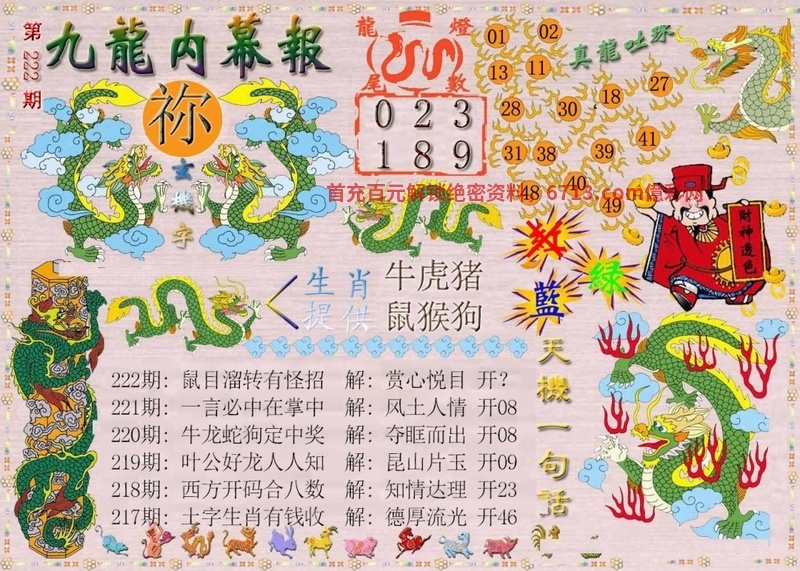 第222期
九龍内幕報
祢
玄機字
龍燈
尾數
0 2 3
1 8 9
01 02
真龍吐珠
13 11
28 30 18 27
31 38 39 41
48 40 49
首充百元解锁绝密资料：6713.com
財神透色
綠
藍
生肖
提供
牛虎猪
鼠猴狗
222期: 鼠目溜转有怪招 解: 赏心悦目 开?
221期: 一言必中在掌中 解: 风土人情 开08
220期: 牛龙蛇狗定中奖 解: 夺眶而出 开08
219期: 叶公好龙人人知 解: 昆山片玉 开09
218期: 西方开码合八数 解: 知情达理 开23
217期: 土字生肖有钱收 解: 德厚流光 开46
天機一句話